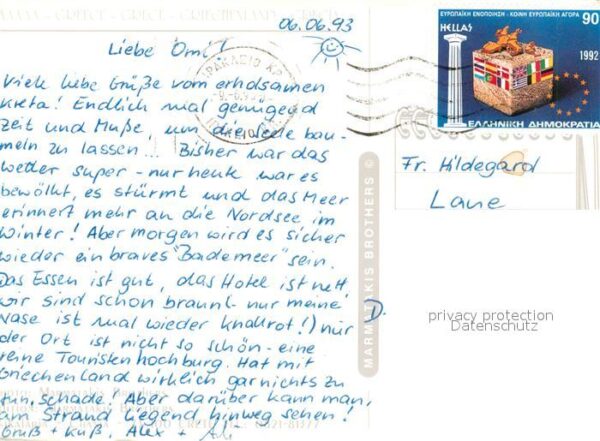 GREECE - GRIECHENLAND
06.06.93
Liebe Omi!
Viele liebe Grüße vom erholsamen
Kreta! Endlich mal genügend
Zeit und Muße, um die Seele bau-
meln zu lassen... Bisher war das
Wetter super - nur heute war es
bewölkt, es stürmt und das Meer
erinnert mehr an die Nordsee im
Winter! Aber morgen wird es sicher
wieder ein braves "Bademeer" sein.
Das Essen ist gut, das Hotel ist nett
wir sind schon braun (- nur meine
Nase ist mal wieder knallrot!) nur
der Ort ist nicht so schön - eine
reine Touristenhochburg. Hat mit
Griechenland wirklich gar nichts zu
tun. Schade! Aber darüber kann man,
am Strand liegend hinweg sehen!
Gruß + Kuß, Alex +
D.
MARMATAKIS BROTHERS ©
ΕΥΡΩΠΑΪΚΗ ΕΝΟΠΟΙΗΣΗ - ΚΟΙΝΗ ΕΥΡΩΠΑΪΚΗ ΑΓΟΡΑ
90
HELLAS
1992
ΕΛΛΗΝΙΚΗ ΔΗΜΟΚΡΑΤΙΑ
Fr. Hildegard
Laue
privacy protection
Datenschutz